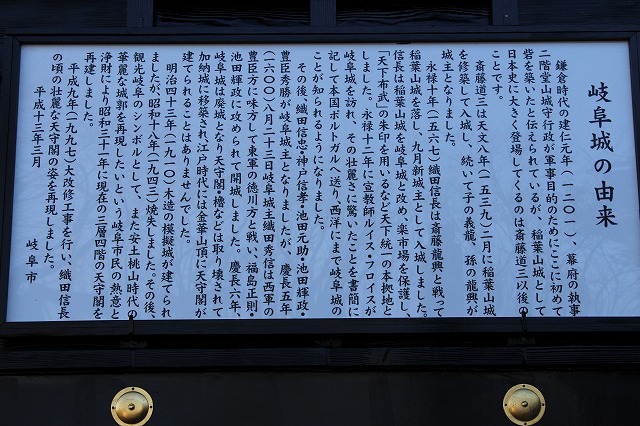 岐阜城の由来
鎌倉時代の建仁元年（一二〇一）、幕府の執事
二階堂山城守行政が軍事目的のためにここに初めて
砦を築いたと伝えられているが、稲葉山城として
日本史に大きく登場してくるのは斎藤道三以後の
ことです。
斎藤道三は天文八年（一五三九）二月に稲葉山城
を修築して入城し、続いて子の義龍、孫の龍興が
城主となりました。
永禄十年（一五六七）織田信長は斎藤龍興と戦って
稲葉山城を落し、九月新城主として入城しました。
信長は稲葉山城を岐阜城と改め、楽市場を保護し、
「天下布武」の朱印を用いるなど天下統一の本拠地と
しました。永禄十二年に宣教師ルイス・フロイスが
岐阜城を訪れ、その壮麗さに驚いたことを書簡に
記して本国ポルトガルへ送り、西洋にまで岐阜城の
ことが知られるようになりました。
その後、織田信忠・神戸信孝・池田元助・池田輝政・
豊臣秀勝が岐阜城主となりましたが、慶長五年
（一六〇〇）八月二十三日岐阜城主織田秀信は西軍の
豊臣方に味方して東軍の徳川方と戦い、福島正則・
池田輝政に攻められて開城しました。慶長六年、
岐阜城は廃城となり天守閣・櫓などは取り壊されて
加納城に移築され、江戸時代には金華山頂に天守閣が
建てられることはありませんでした。
明治四十三年（一九一〇）木造の模擬城が建てられ
ましたが、昭和十八年（一九四三）焼失しました。その後、
観光岐阜のシンボルとして、また安土桃山時代の
華麗な城郭を再現したいという岐阜市民の熱意と
浄財により昭和三十一年に現在の三層四階の天守閣を
再建しました。
平成九年（一九九七）大改修工事を行い、織田信長
の頃の壮麗な天守閣の姿を再現しました。
平成十三年三月
岐阜市